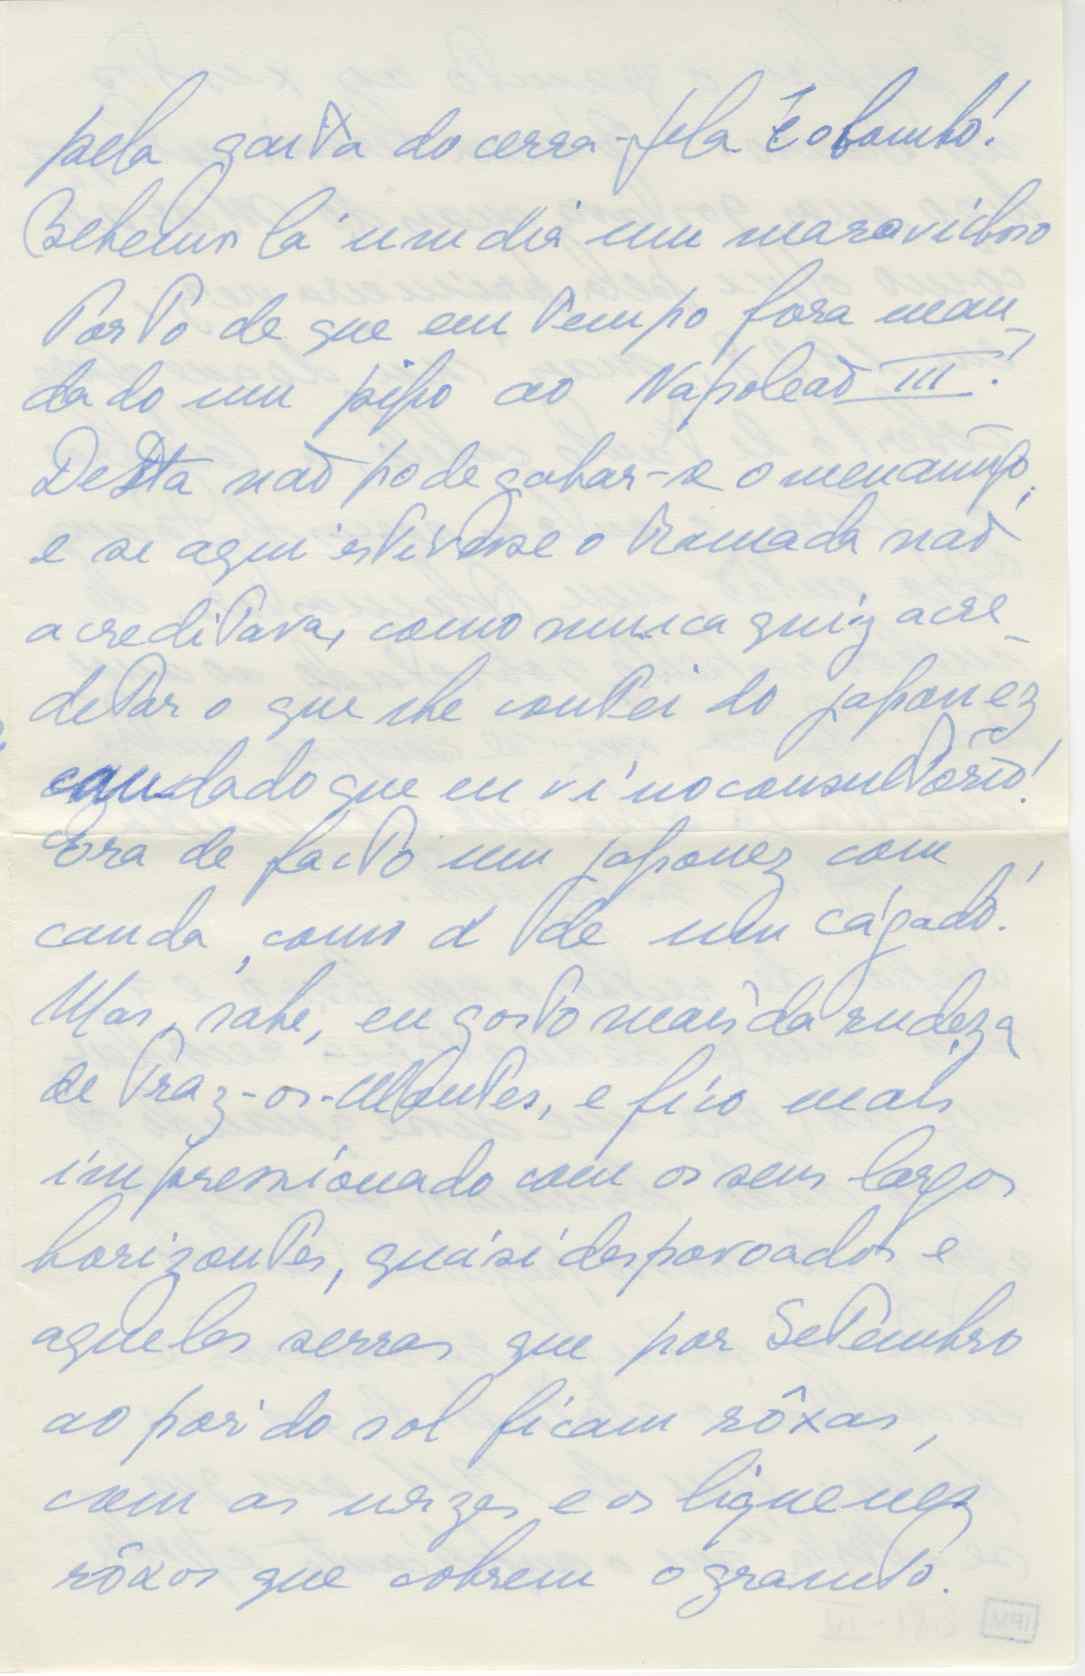 pela gaita do cerra-fila. E o bombo!
Bebemos lá um dia um maravilhoso
Porto de que em tempo fora man-
dado um pipo ao Napoleão III!
Desta não pode gabar-se o menampo,
e se aqui estivesse o Ramada não
acreditava, como nunca quiz acre-
detar o que lhe contei do japonez
caudado que eu vi no consultório!
Era de facto um japonez com
cauda, como a de um cágado!
Mas, sabe, eu gosto mais da rudeza
de Traz-os-Montes, e fico mais
impressionado com os seus largos
horizontes, quási despovoados e
aqueles serras que por Setembro
ao pôr do sol ficam rôxas,
com as urzes e os liquenes
rôxos que cobrem o granito.